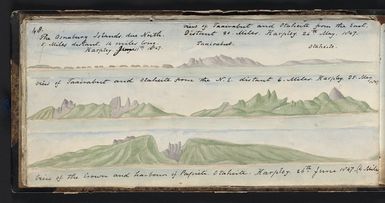 48.
The Osnaburg Islands due North.
5 Miles distant 14 miles long
Harpley June 1847
View of Taawirbut and Otaheite from the East.
Distant 30 Miles. Harpley 24th May. 1847.
Taawirbut.
Otaheite.
View of Taawirbut and Otaheite from the N.E. distant 6 Miles. Harpley 25 May. 1847.
View of the Crown and harbour of Papeite Otaheite. Harpley. 26th June 1847. (4 Miles